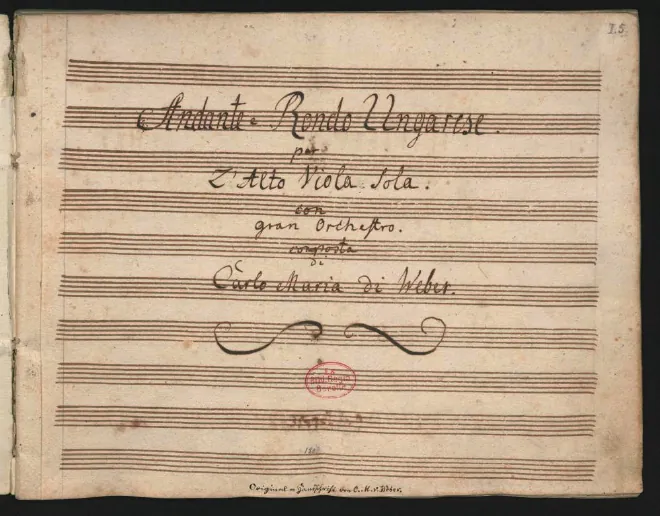 I.5.
Andante e Rondo Ungarese.
per
L'Alto Viola Sola.
con
gran Orchestro.
composta
di
Carlo Maria di Weber.
Original = Handschrift von C. M. v. Weber.